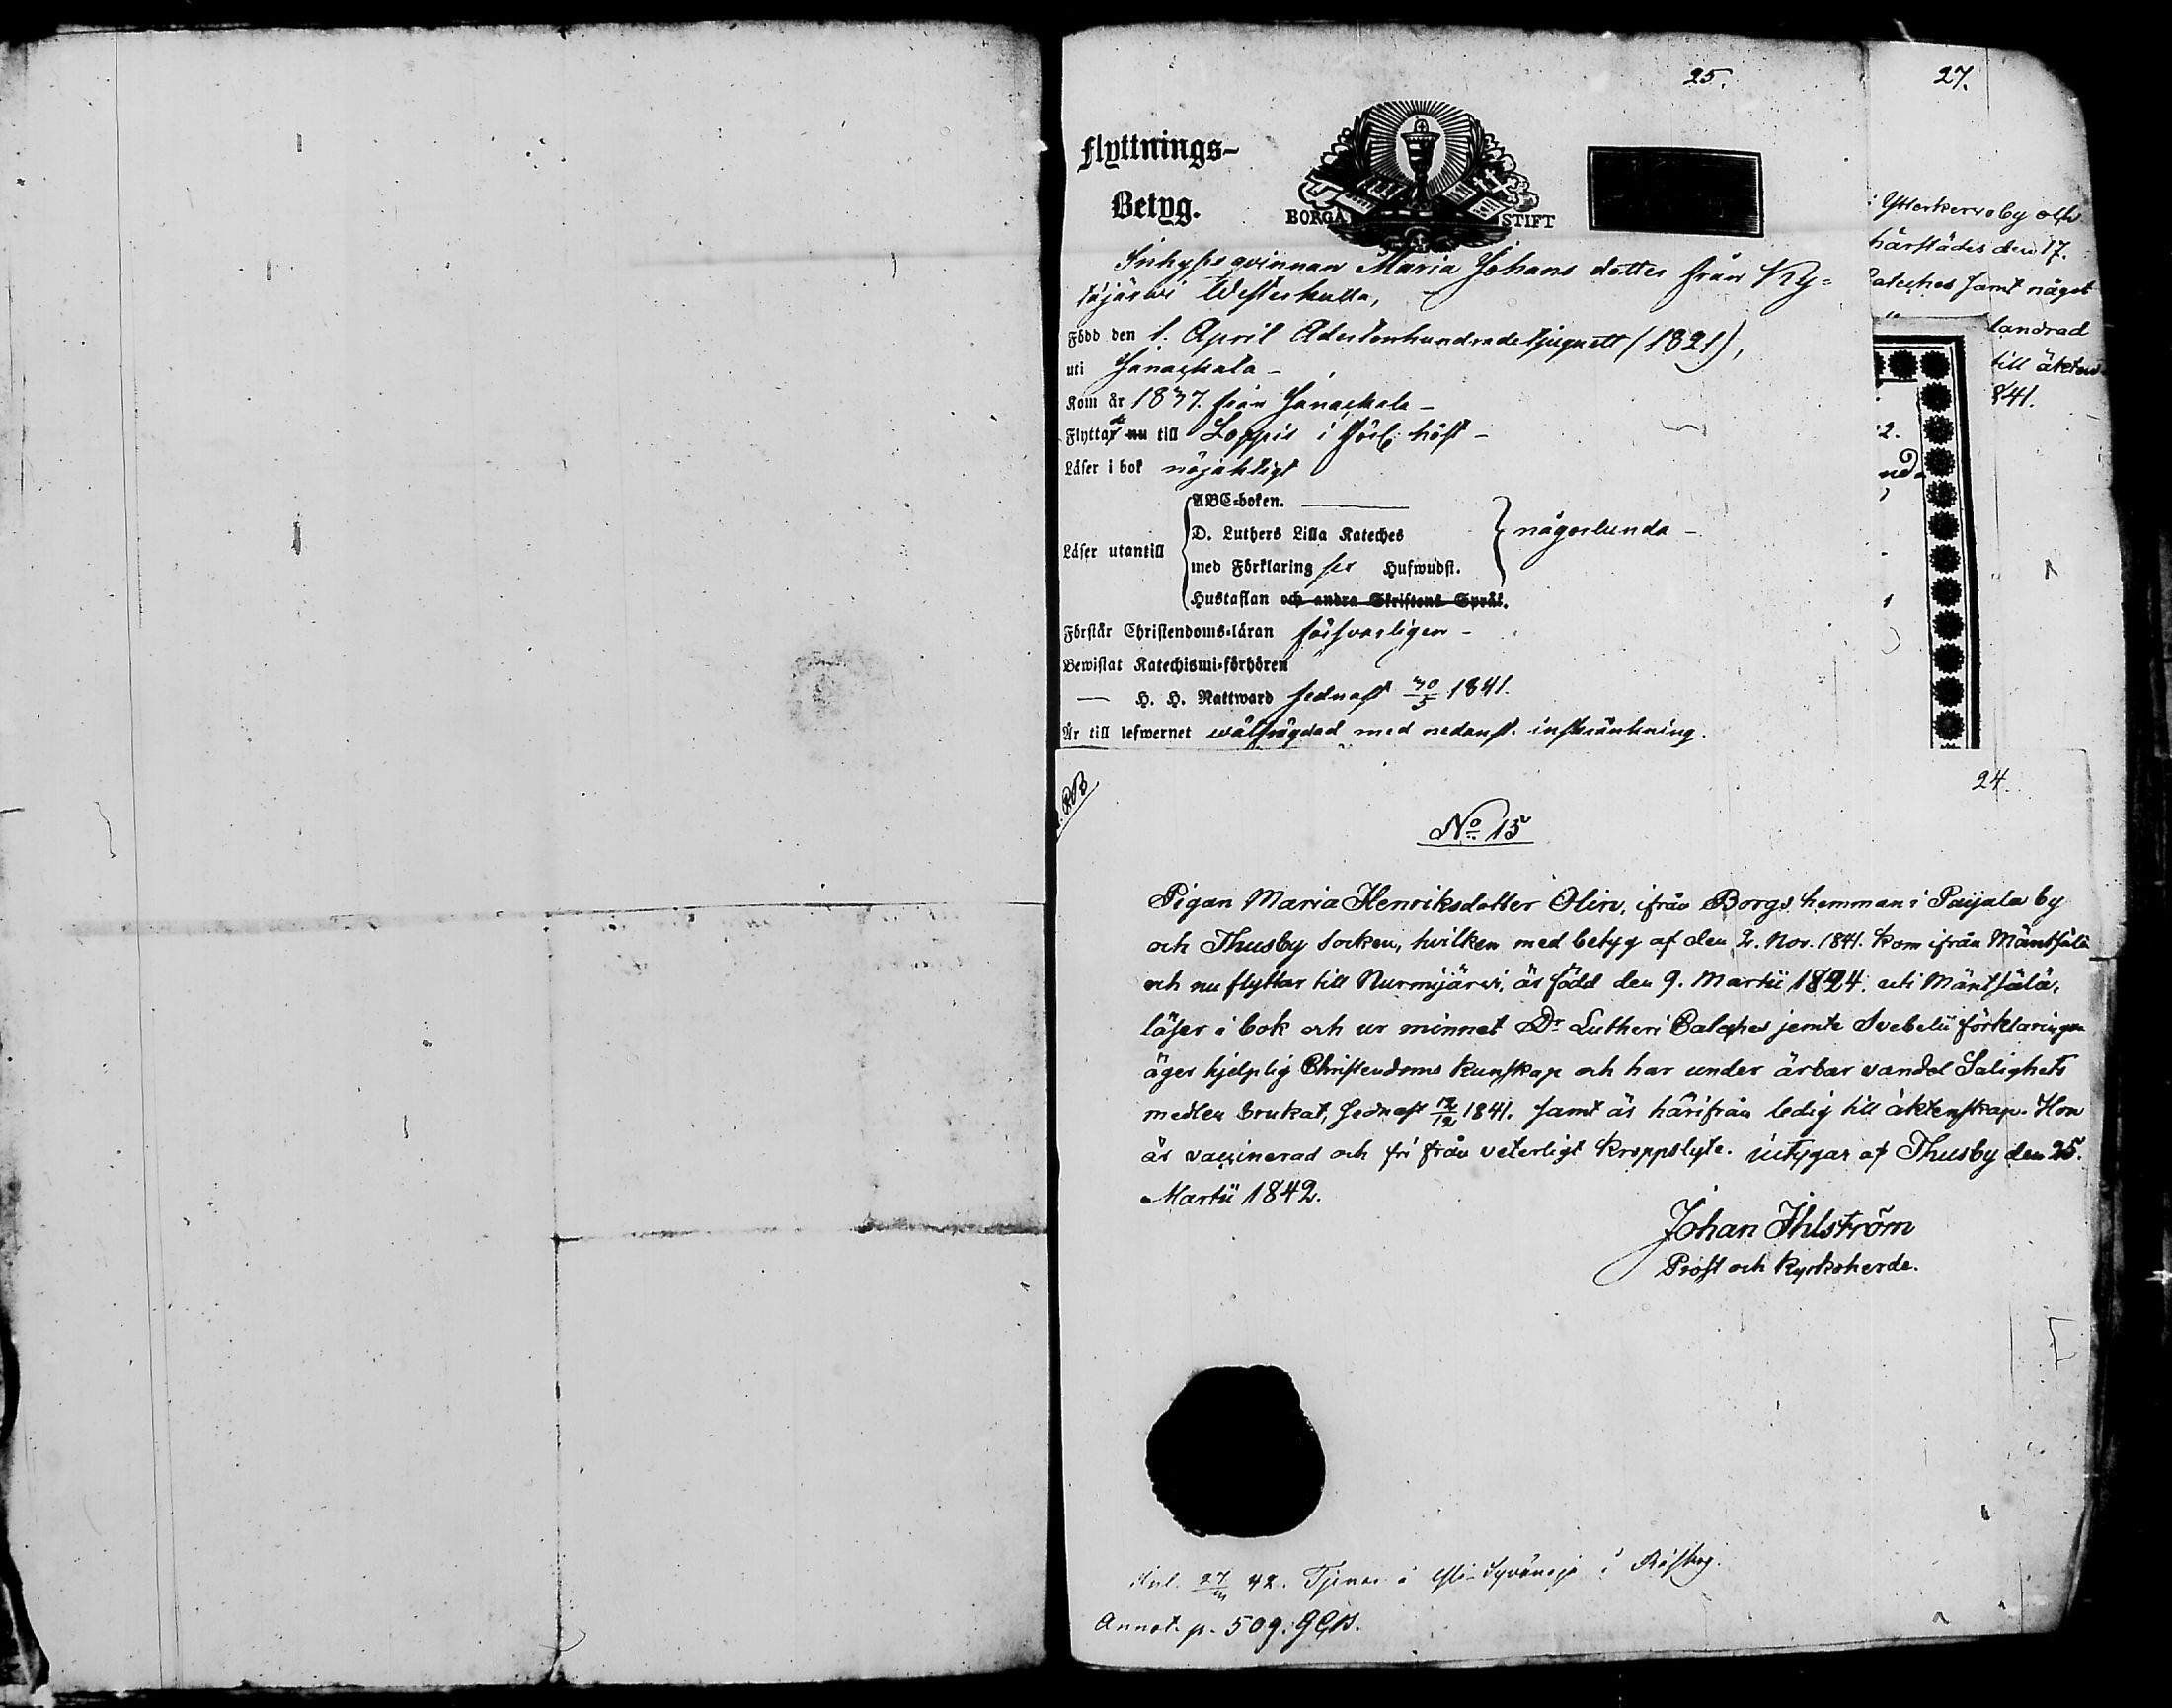 25.
27.
Flyttnings-
Betyg.
BORGÅ STIFT
Inhyses qvinnan Maria Johans dotter från Ky-
täjärwi Westerkulla,
Född den 1. April Adertonhundradetjuguett (1821),
uti Janackala -
Kom år 1837. från Janackala -
Flyttade nu till Loppis i förl. höst -
Läser i bok nöjaktigt
Läser utantill
ABC-boken.
D. Luthers Lilla Kateches
med Förklaring sex Hufwudst.
någorlunda -
Hustaflan och andra Skriftens Språk.
Förstår Christendoms-läran försvarligen -
Bewistat Katechismi-förhören
— H. H. Nattward sednast 30/5 1841.
Är till lefwernet wälfrägdad med nedanst. inskränkning.
i Ytterkervo by och
härstädes den 17.
Cateches samt något
landrad
till äkten-
841.
2.
24.
No 15
Pigan Maria Henriksdotter Olin, ifrån Borgs hemman i Paijala by
och Thusby Socken, hvilken med betyg af den 2. Nov. 1841. kom ifrån Mäntsälä
och nu flyttar till Nurmijärvi, är född den 9. Martii 1824. uti Mäntsälä,
läser i bok och ur minnet Dr Lutheri Catches jemte Svebelii förklaringen
äger hjelplig Christendoms kunskap och har under ärbar vandel Salighets
medlen brukat, sednast 12/12 1841. samt är härifrån ledig till äktenskap. Hon
är vaccinerad och fri från veterligt kroppslyte. intygar af Thusby den 25.
Martii 1842.
Johan Ihlström
Prost och Kyrkoherde.
27 42. Tjenar i
Annot. p. 509.